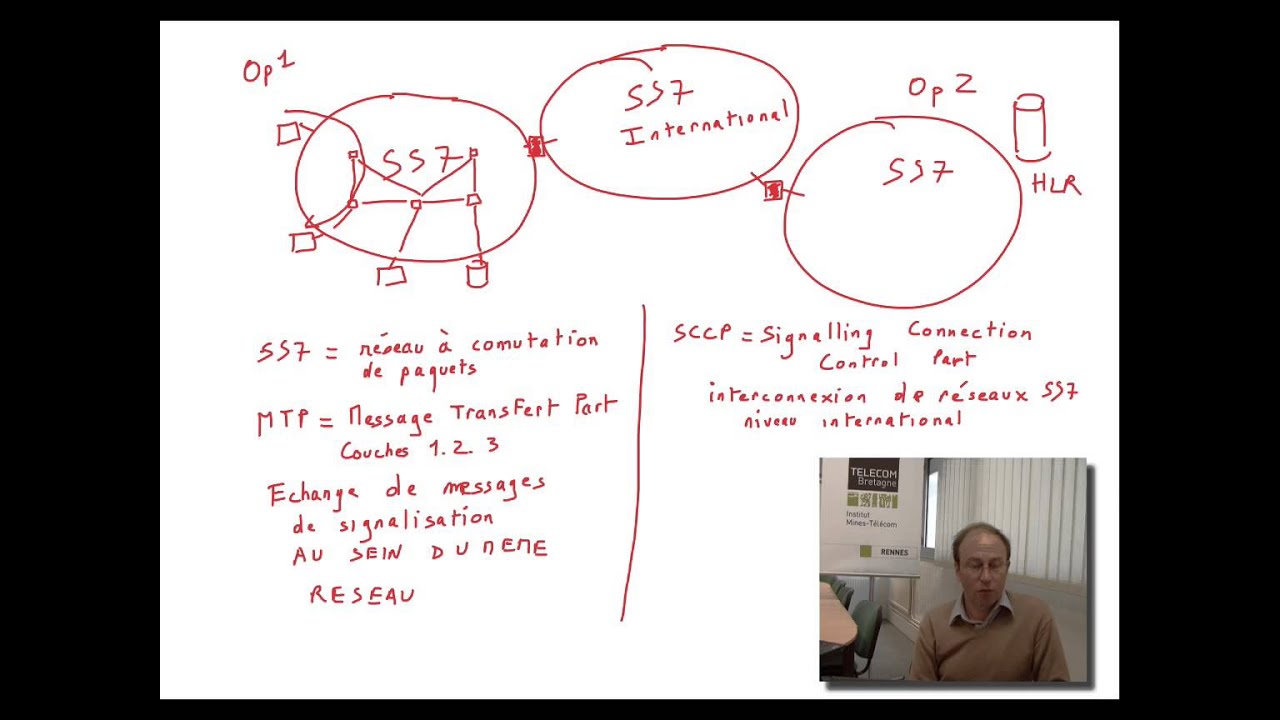 Op1
SS7
SS7
International
Op 2
SS7
HLR
SS7 = réseau à comutation
de paquets
MTP = Message Transfert Part
Couches 1.2.3
Echange de messages
de signalisation
AU SEIN DU MEME
RESEAU
SCCP = Signalling Connection
Control Part
interconnexion de réseaux SS7
niveau international
TELECOM
Bretagne
Institut
Mines-Télécom
RENNES